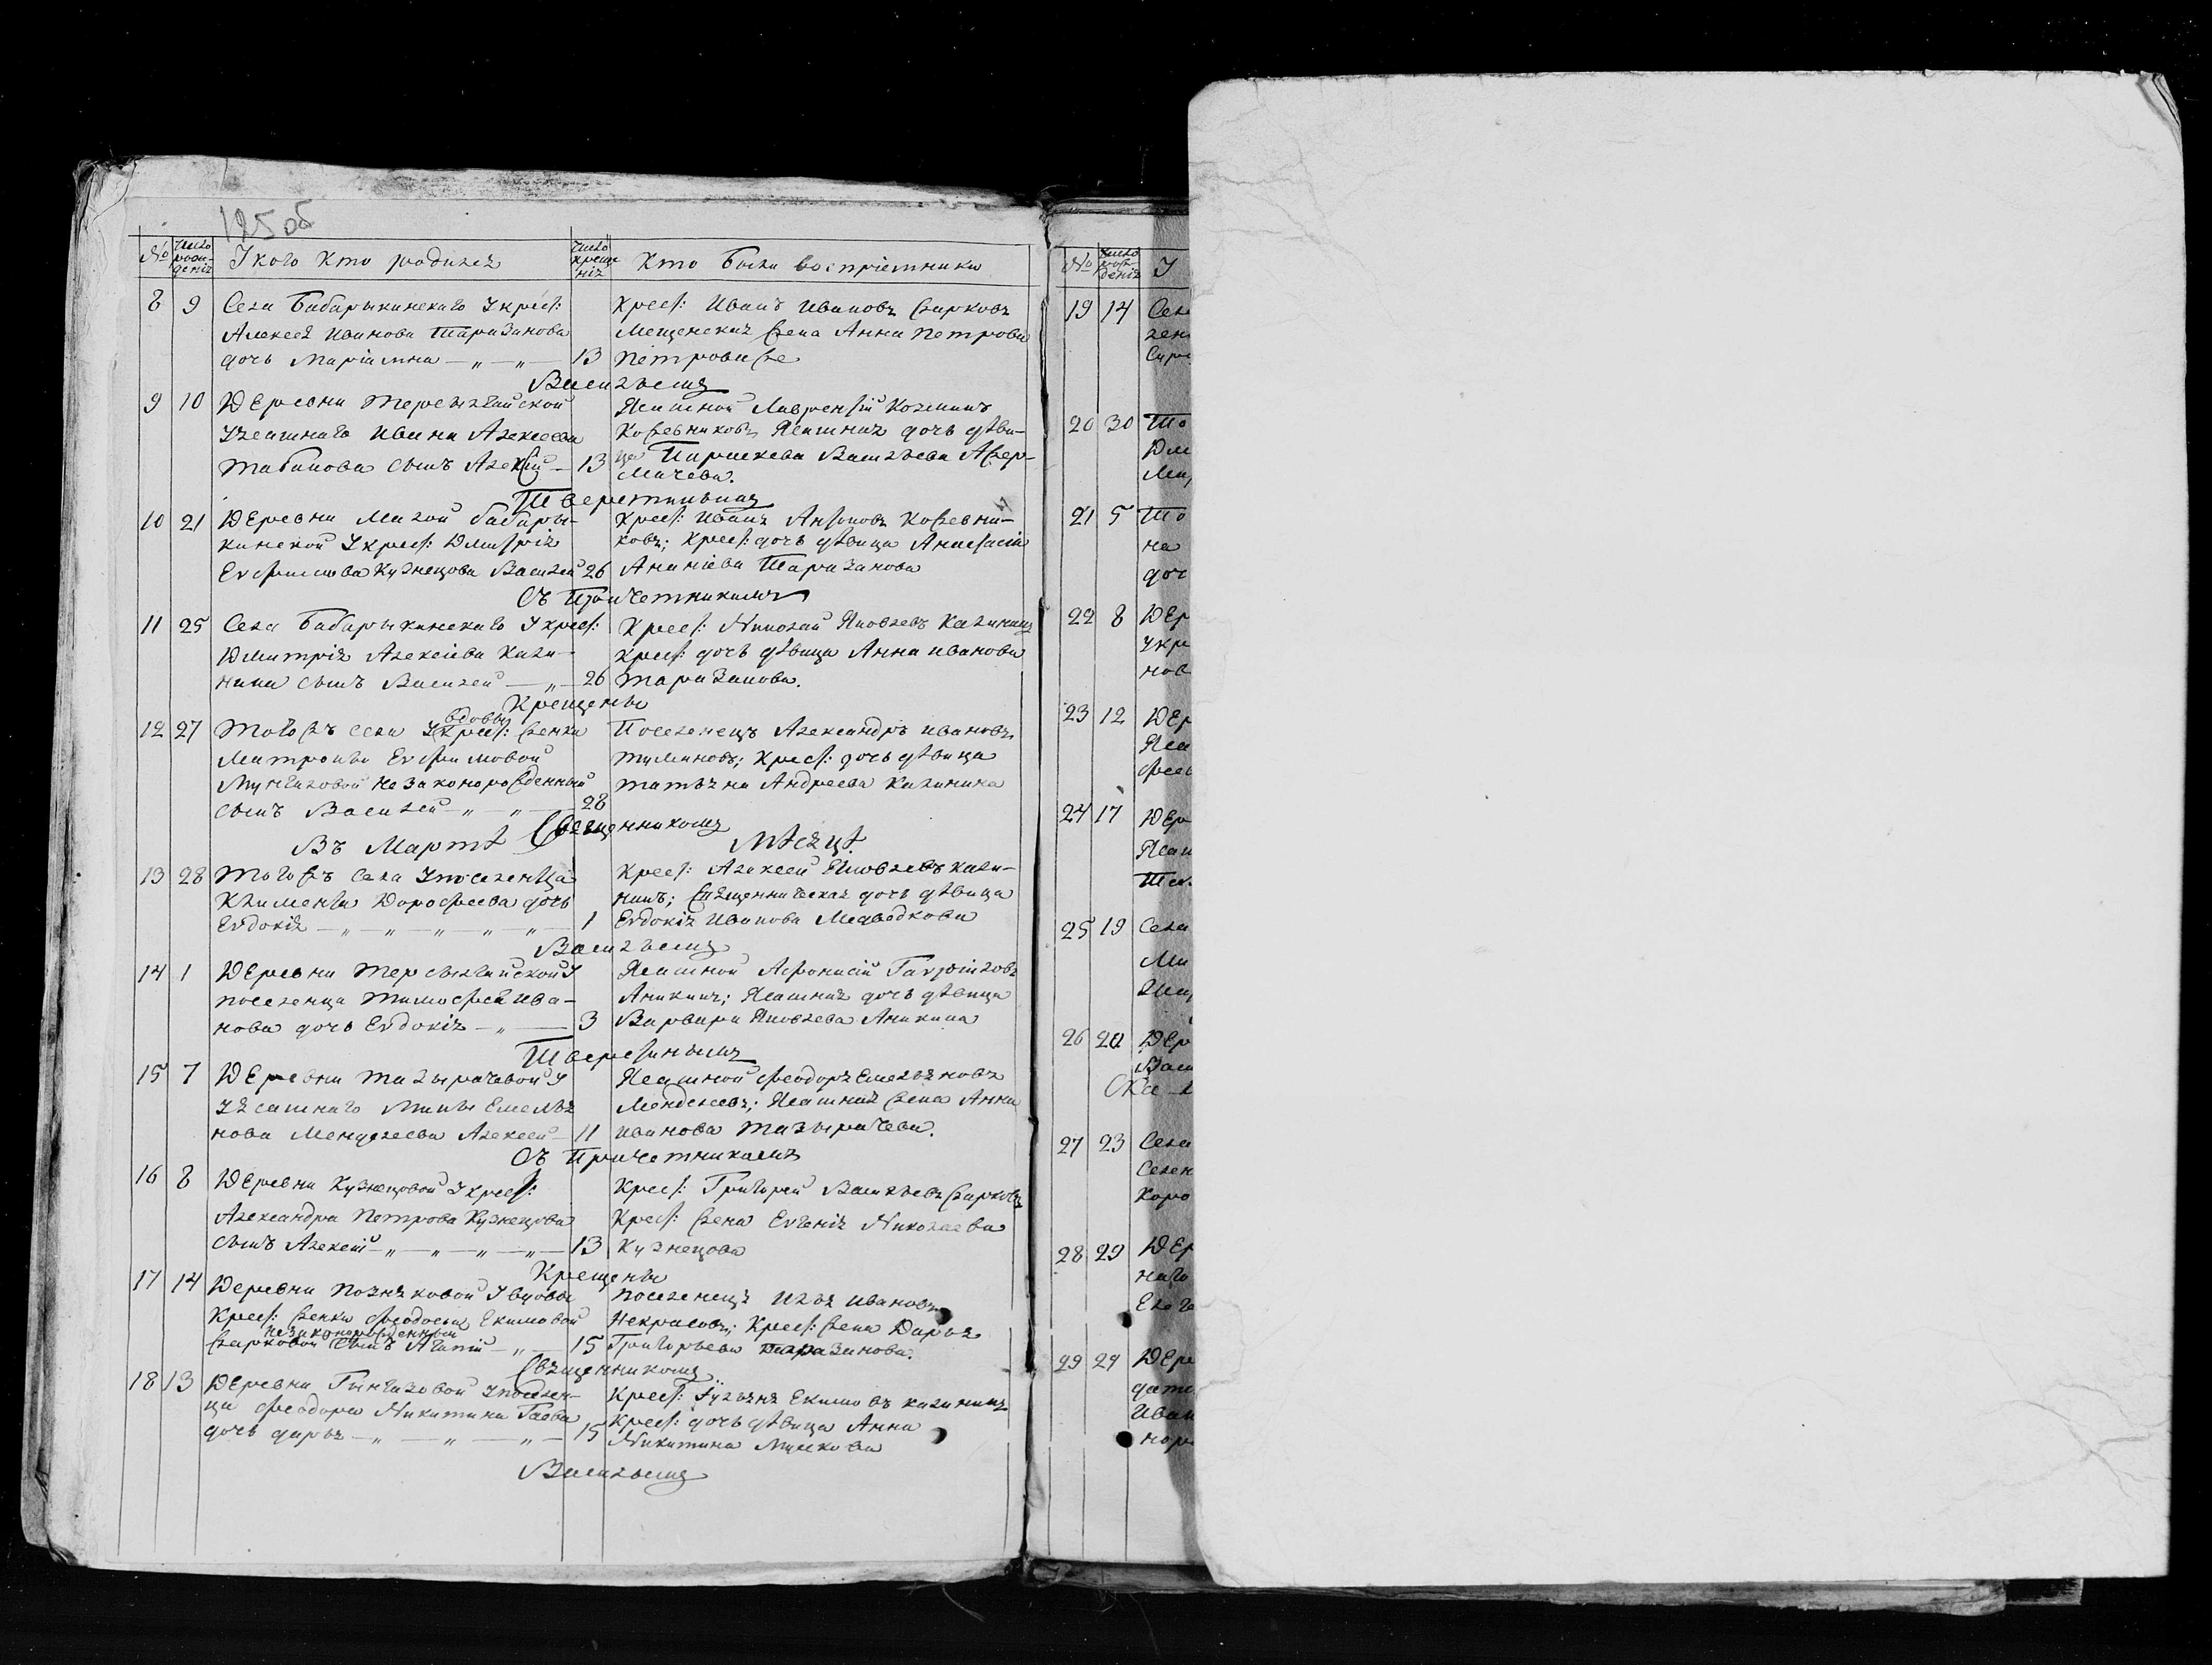 125 об
№ Число рожденія У кого кто родился Число крещенія Кто были воспріемники
8 9 Села Бабарыкинскаго У крест:
Алексея Иванова Таразанова
дочь Маріамна — „ — „ — 13
Крест: Иванъ Ивановъ Жарковъ
Мещенская жена Анна Петрова
Петрова же
Васильемъ
9 10 Деревни
Уясашнаго Ивана Алексеева
сынъ Алексѣй — 13
Ясашной Лаврентій Козминъ
Кожевниковъ, Ясашная дочь дѣви-
ца Параскева Васильева
10 21 Деревни Малой бабары-
кинской У крест: Дмитрія
Евфимова Кузнецова Василей 26
Крест: Иванъ Антоновъ Кожевни-
ковъ; крест: дочь дѣвица Анастасія
Ананіева Таразанова
Съ Причетникомъ
11 25 Села Бабарыкинскаго У крест:
Дмитрія Алексіева Кали-
нина сынъ Василей — „ — 26
Крест: Николай Яковлевъ Калининъ
крест: дочь дѣвица Анна Иванова
Таразанова.
Крещены
12 27 Тогожъ села У вдовы крест: женки
Матроны Евфимовой
незаконорожденный
сынъ Василей — „ — „ — 28
Поселенецъ Александръ Ивановъ
крест: дочь дѣвица
Татьяна Андреева Калинина
Священникомъ
Въ Мартѣ мѣсяцѣ
13 28 Тогожъ села У поселенца
Климентія Дорофеева дочь
Евдокія — „ — „ — „ — „ — „ — 1
Крест: Алексей Яковлевъ Кали-
нинъ; Священническая дочь дѣвица
Евдокія Иванова Медводкова
Васильемъ
14 1 Деревни У
поселенца Тимофея Ива-
нова дочь Евдокія — „ — 3
Ясашной Афонасій Гавріиловъ
Аникинъ; Ясашная дочь дѣвица
Варвара Яковлева Аникина
15 7 Деревни Тазырачевой У
Уясашнаго Емелья
нова Менделеева Алексей — 11
Ясашной Феодоръ Емельяновъ
Менделеевъ; Ясашная жена Анна
Иванова Тазырачева.
Съ Причетникомъ
16 8 Деревни Кузнецовой У крест:
Александра Петрова Кузнецова
сынъ Алексій — „ — „ — „ — „ — 13
Крест: Григорей Васильевъ Жарковъ
Крест: жена Евгенія Николаева
Кузнецова
Крещены
17 14 Деревни Позняковой У вдовы
крест: женки Феодосьи Екимовой
Жарковой незаконорожденный сынъ Агапій — „ — 15
Поселенецъ Илья Ивановъ
Некрасовъ; Крест: жена Дарья
Григорьева Таразанова.
Священникомъ
18 13 Деревни У поселен-
ца Феодора Никитина
дочь дарья — „ — „ — „ — 15
Крест: Екимовъ Калининъ
Крест: дочь дѣвица Анна
Никитина
Васильемъ
№ Число рожденія У
19 14 Села
20 30 То
21 5 То
на
доч
22 8 Дер
Укре
нов
23 12 Дер
Яса
24 17 Дер
Ясаш
25 19 Села
26 20 Дер
Васи
27 23 Села
Селен
Коро
28 29 Дер
наго
29 29 Дере
Иван